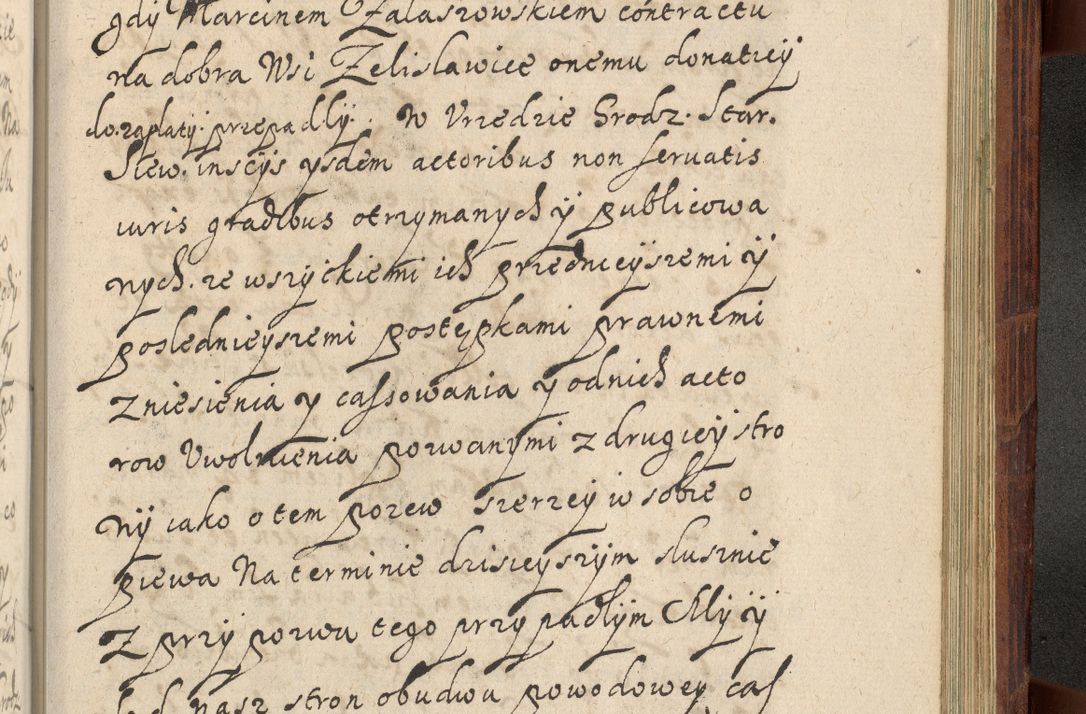 gdy Marcinem Zalaszowskiem contractu
na dobra Wsi Zelislawice onemu donaticy
do. zaplaty. przepadly. W Vrzedzie Grodz. Star.
Scew. inscijs ysdem actoribus non seruatis
iuris gradibus otrzymanych y publicowa
nych. ze wszyckiemi ich przednieyszemi y
poslednieyszemi postępkami prawnemi
Zniesienia y cassowania y odnich acto
row Vwolnienia pozwanymi z drugiey stro
ny iako o tem pozew szerzey w sobie o
piewa Na terminie dzisieyszym slusznie
z przypozwu tego przypadłym My y
Sąd nasz stron obudwu powodowey cas